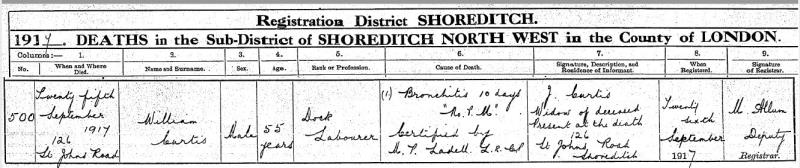 Registration District SHOREDITCH.
1917. DEATHS in the Sub-District of SHOREDITCH NORTH WEST in the County of LONDON.
Columns:— 1. 2. 3. 4. 5. 6. 7. 8. 9.
No. When and Where Died. Name and Surname. Sex. Age. Rank or Profession. Cause of Death. Signature, Description, and Residence of Informant. When Registered. Signature of Registrar.
500
Twenty fifth
September
1917
126
St Johns Road
William
Curtis
Male
55
years
Dock
Labourer
(1) Bronchitis 10 days
"No. P. M"
Certified by
M. P. Ladell L.R.C.P.
J Curtis
Widow of deceased
Present at the death
126
St Johns Road
Shoreditch
Twenty
sixth
September
1917
M. Allum
Deputy
Registrar.